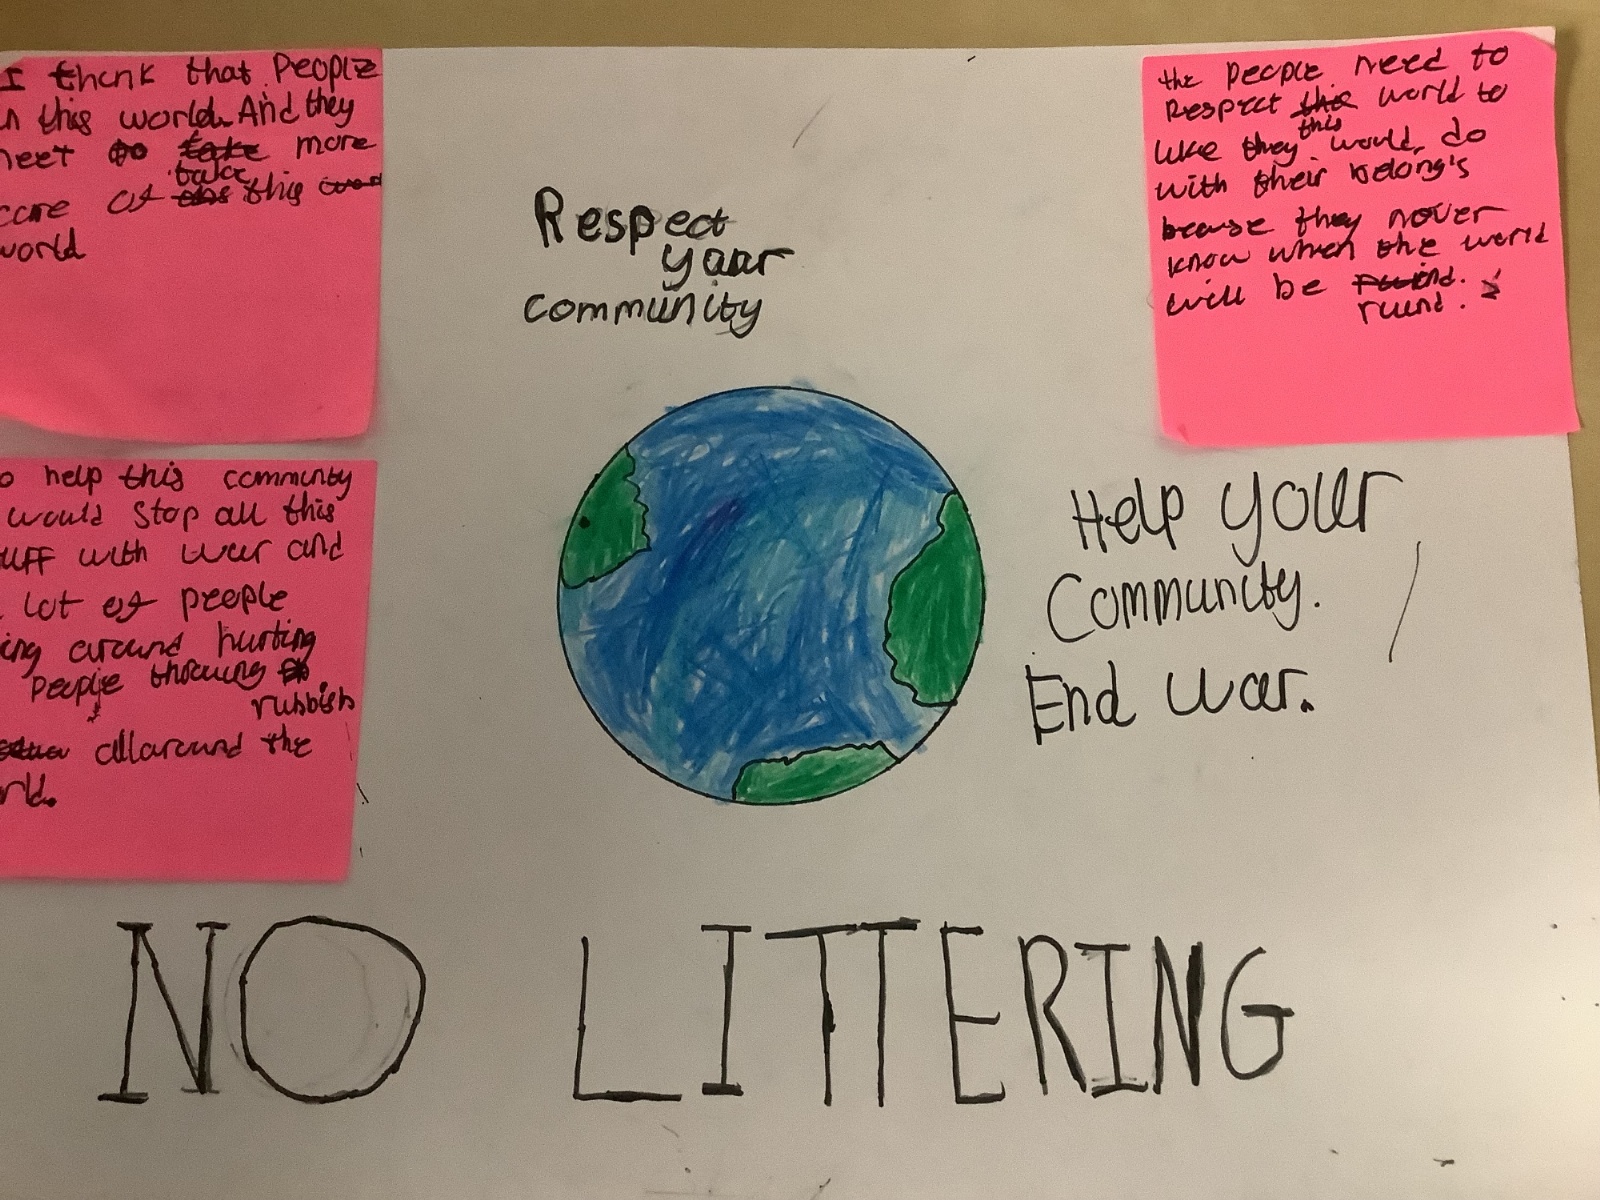 I thenk that People
in this world. And they
neet to take more
take
care of this this
world
Respect
your
community
the people need to
Respect the world to
this
like they would, do
with their belong's
because they never
know when the world
will be ruind.
ruind.
o help this community
would Stop all this
uff with war and
lot of people
ing around hurting
people throwing
rubbish
allaround the
rld.
Help your
Community.
End war.
NO LITTERING